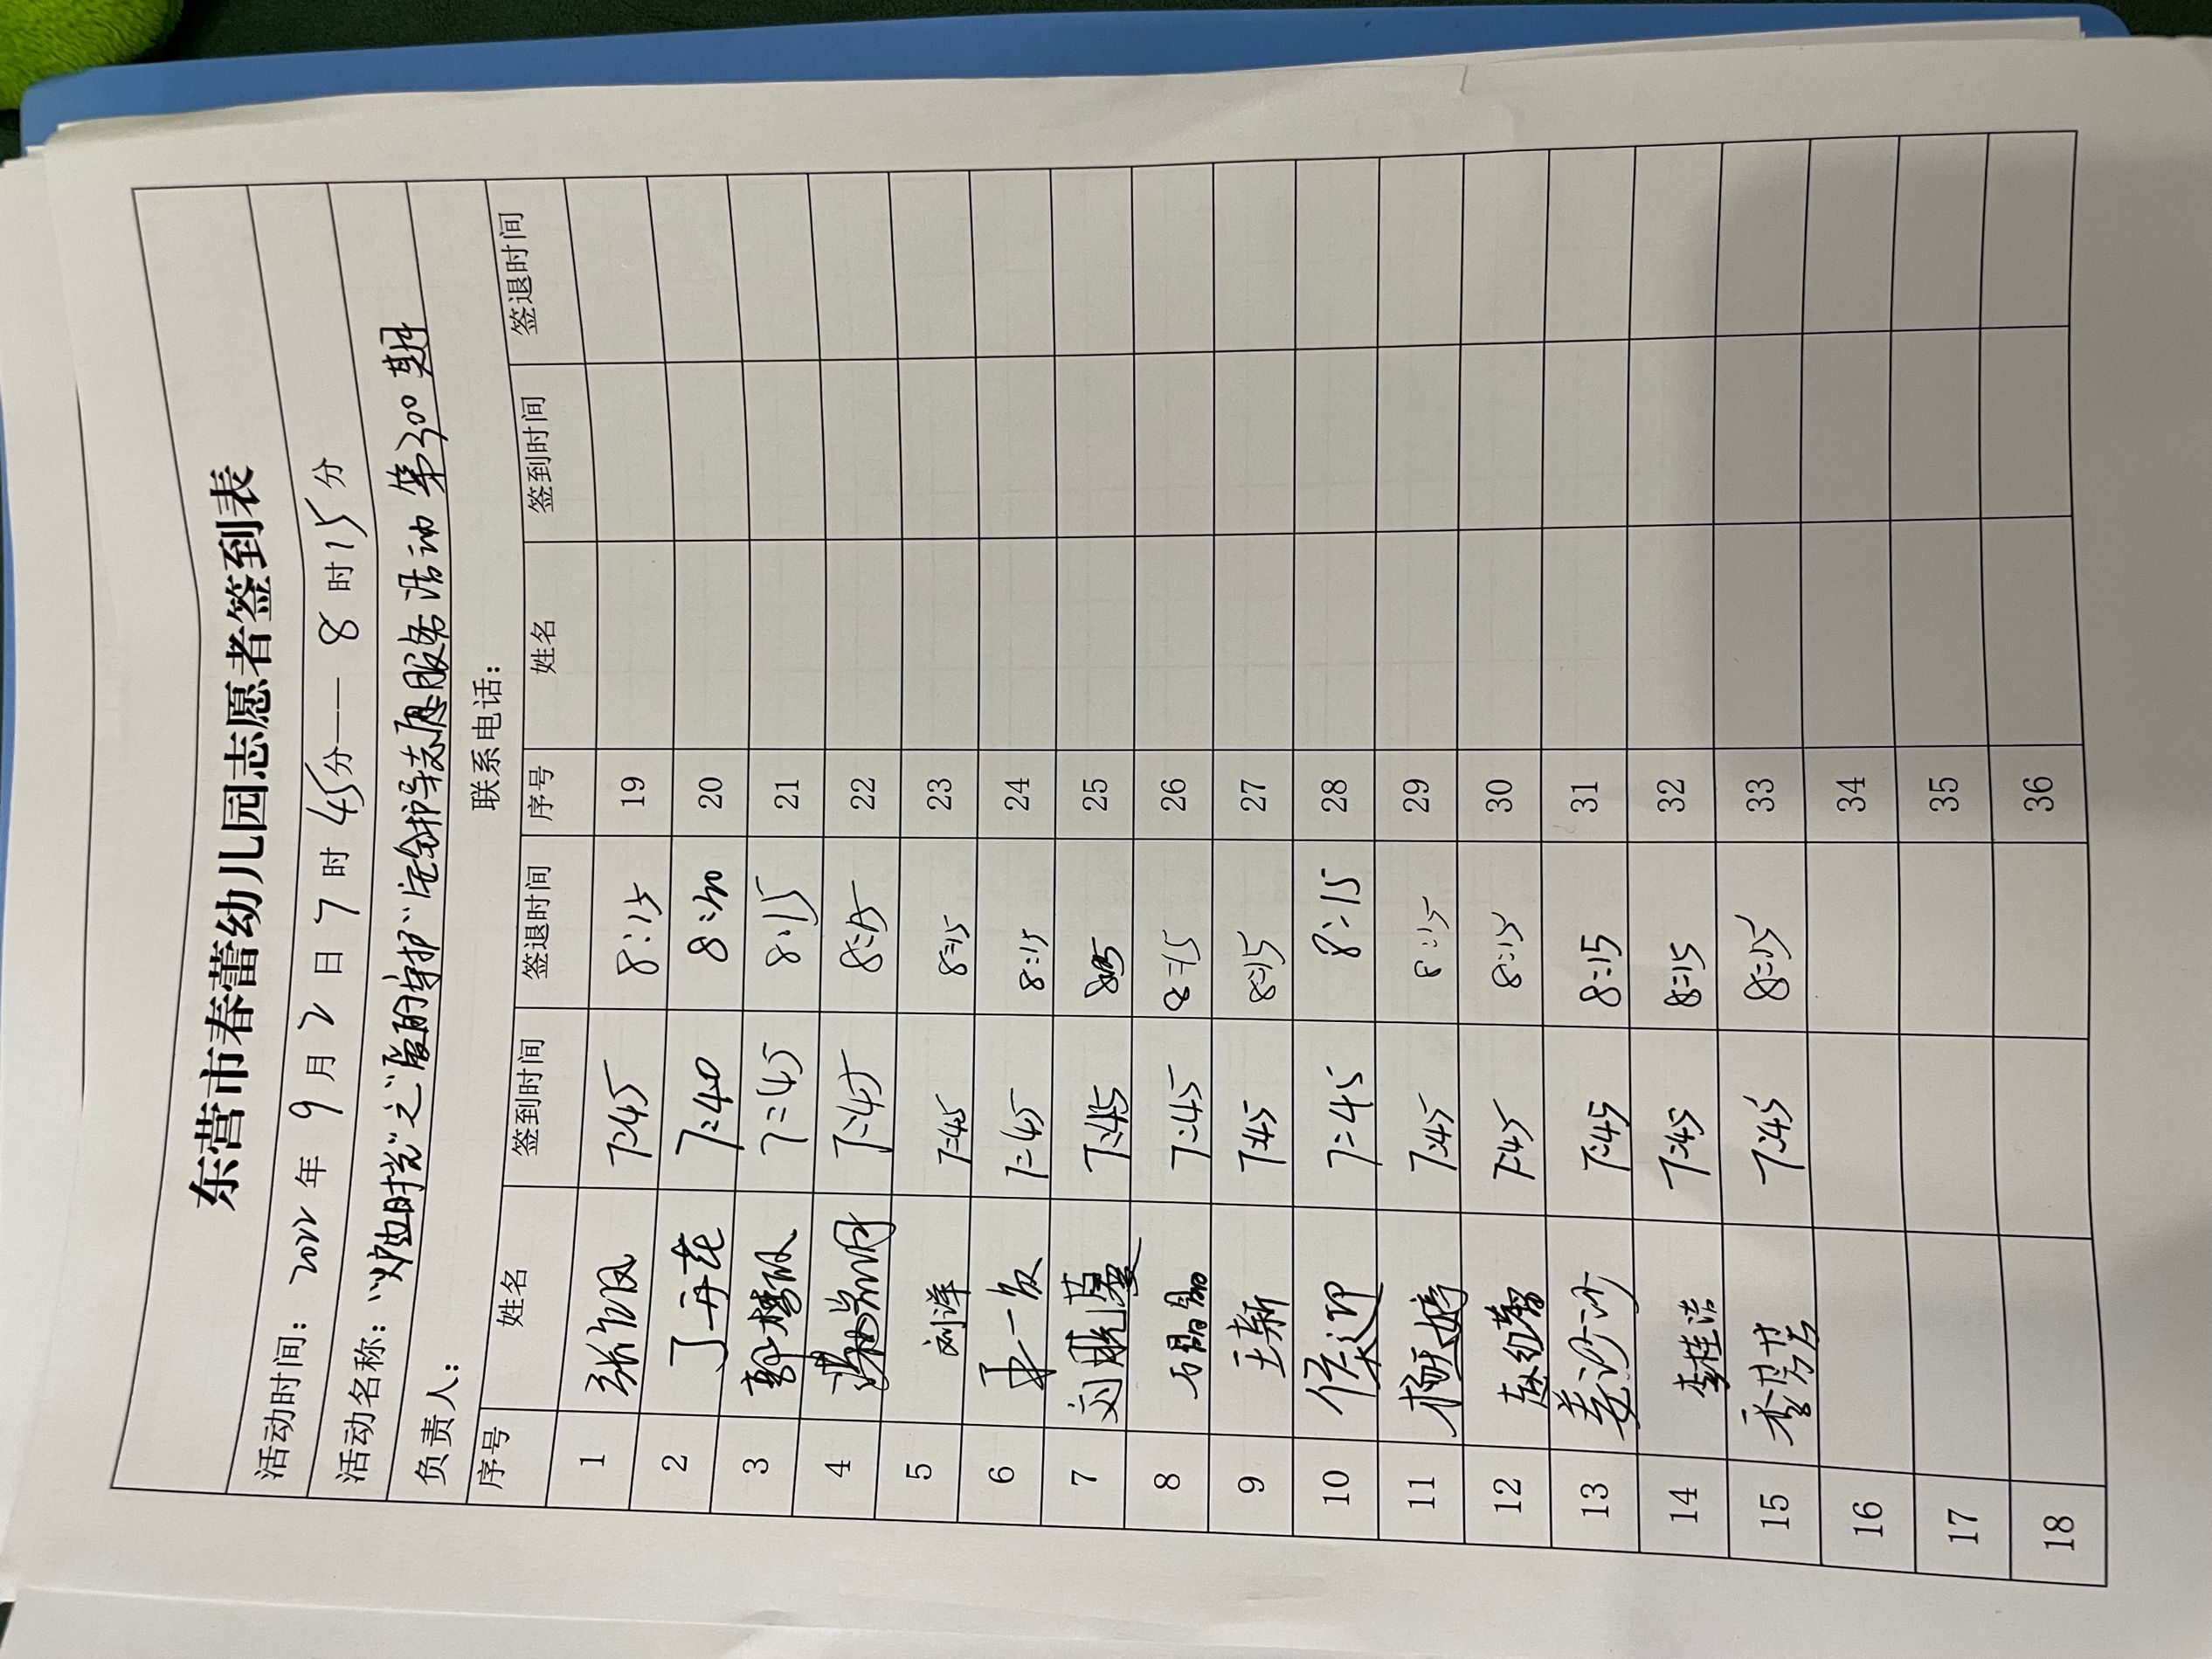 东营市春蕾幼儿园志愿者签到表
活动时间：2022 年 9 月 2 日 7 时 45 分—— 8 时 15 分
活动名称：时光"之"的守护"安全护导志愿服务活动 第300期
负责人： 联系电话：
序号 姓名 签到时间 签退时间 序号 姓名 签到时间 签退时间
1 7:45 8:15 19
2 丁丹花 7:40 8:20 20
3 7:45 8:15 21
4 7:45 8:15 22
5 刘洋 7:45 8:15 23
6 7:45 8:15 24
7 刘 7:45 8:15 25
8 石晶晶 7:45 8:15 26
9 王新 7:45 8:15 27
10 侯迎 7:45 8:15 28
11 杨婷 7:45 8:15 29
12 赵红蕾 7:45 8:15 30
13 姜沙沙 7:45 8:15 31
14 李桂洁 7:45 8:15 32
15 7:45 8:15 33
16 34
17 35
18 36